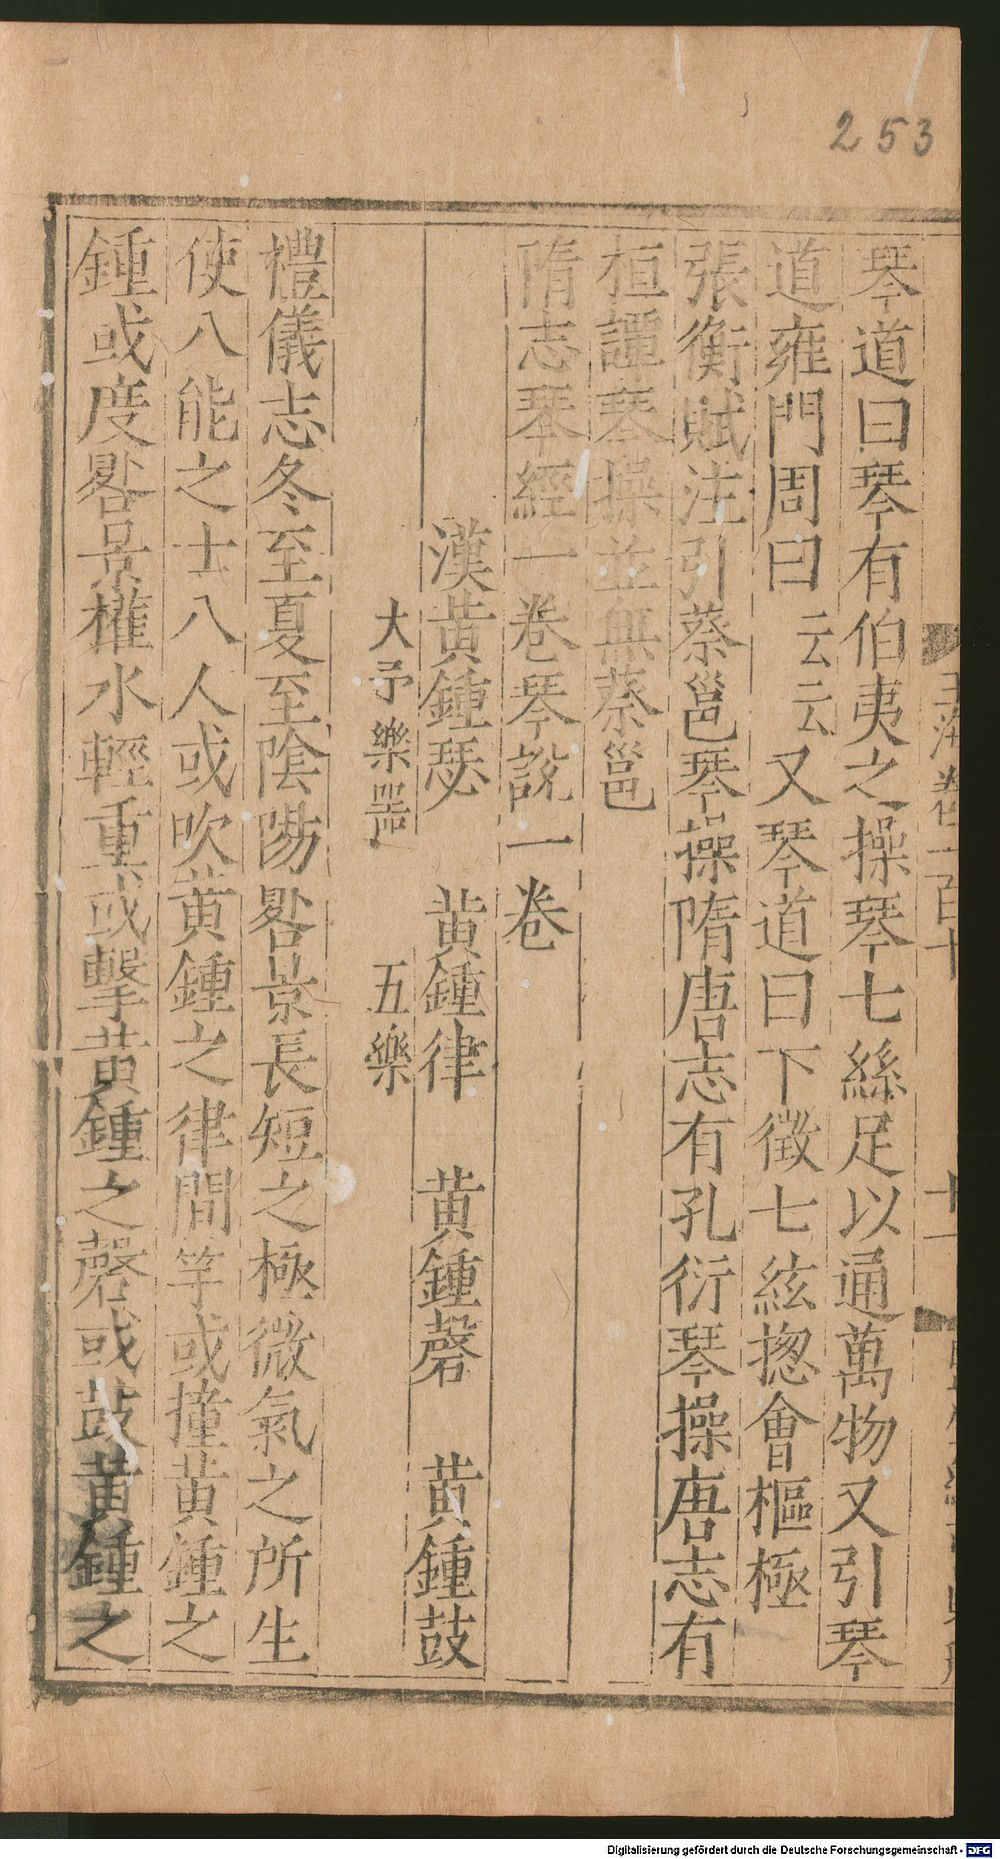 253
琴道曰琴有伯夷之操琴七絲足以通萬物又引琴
道雍門周曰云云又琴道曰下徵七絃揔會樞極
張衡賦注引蔡邕琴操隋唐志有孔衍琴操唐志有
桓譚琴操並無蔡邕
隋志琴經一卷琴說一卷
漢黄鍾瑟　黄鍾律　黄鍾磬　黄鍾鼓
大予樂器　五樂
禮儀志冬至夏至陰陽晷景長短之極微氣之所生
使八能之士八人或吹黄鍾之律間竽或撞黄鍾之
鍾或度晷景權水輕重或擊黄鍾之磬或鼓黄鍾之
玉海卷一百十
十一
Digitalisierung gefördert durch die Deutsche Forschungsgemeinschaft - DFG